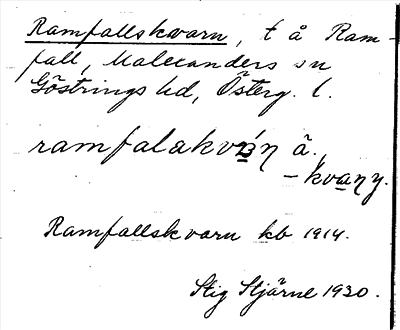 Ramfallskvarn, t å Ram-
fall, Malexanders sn
Göstrings hd, Österg. l.
ramfalakvan â.
– kvany.
Ramfallskvarn kb 1914.
Stig Stjärne 1930.